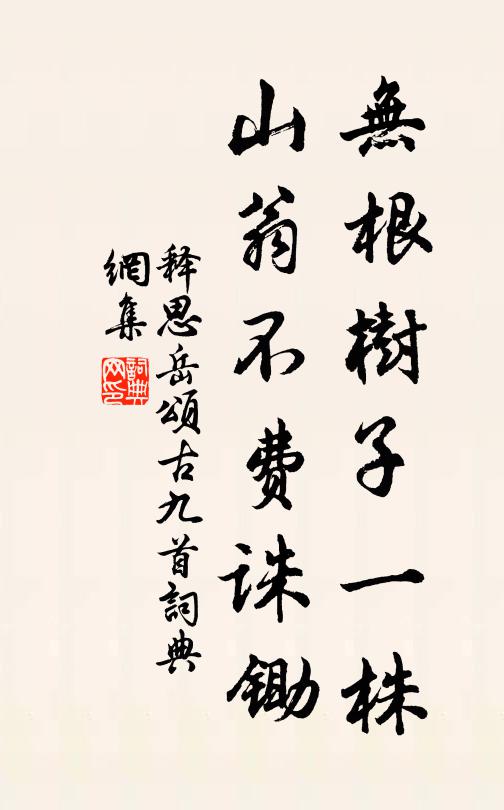 無根樹子一株
山翁不費誅鋤
释思岳頌古九首詞典
網集
詞典
网印